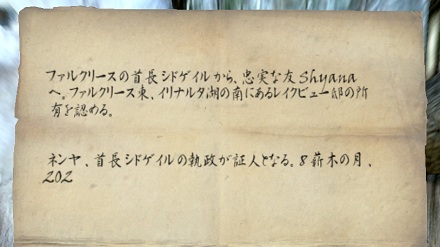 ファルクリースの首長シドゲイルから、忠実な友Shyana
へ。ファルクリース東、イリナルタ湖の南にあるレイクビュー邸の所
有を認める。
ネンヤ、首長シドゲイルの執政が証人となる。8 薪木の月、
202